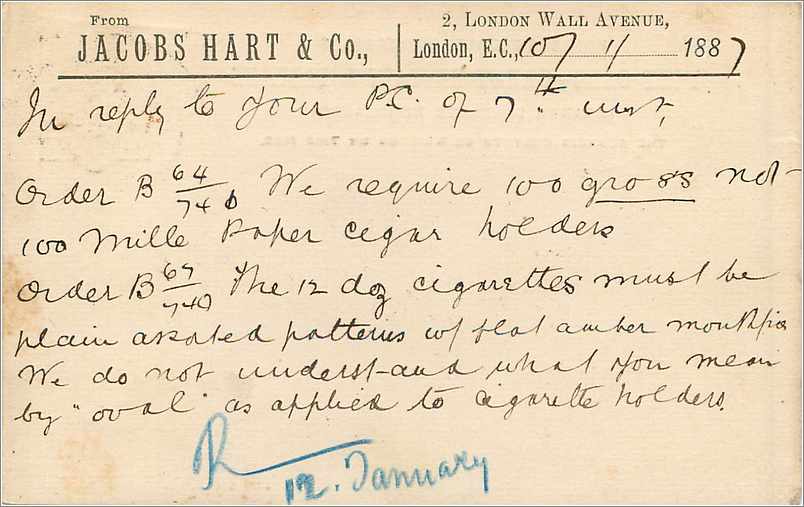 From
JACOBS HART & Co.,
2, LONDON WALL AVENUE,
London, E.C., 10/ 1/ 1887
In reply to your P.C. of 7th inst,
Order B 64/740 We require 100 gross not
100 Mille Paper cigar holders
Order B 67/740 The 12 doz cigarettes must be
plain assorted patterns w/ flat amber mouthpies
We do not understand what you mean
by "oval" as applied to cigarette holders.
R
12. January